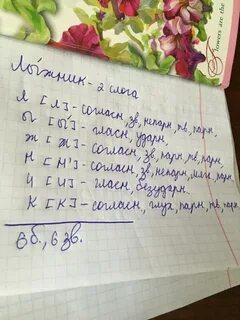 Flowers are the
Лы́жник - 2 слога
Л [Л] - согласн, зв, непарн, тв, парн.
Ы [Ы́] - гласн, ударн.
Ж [Ж] - согласн, зв, парн, тв, парн.
Н [Н'] - согласн, зв, непарн, мягк, парн.
И [И] - гласн, безударн.
К [К] - согласн, глух, парн, тв, парн
6 б, 6 зв.